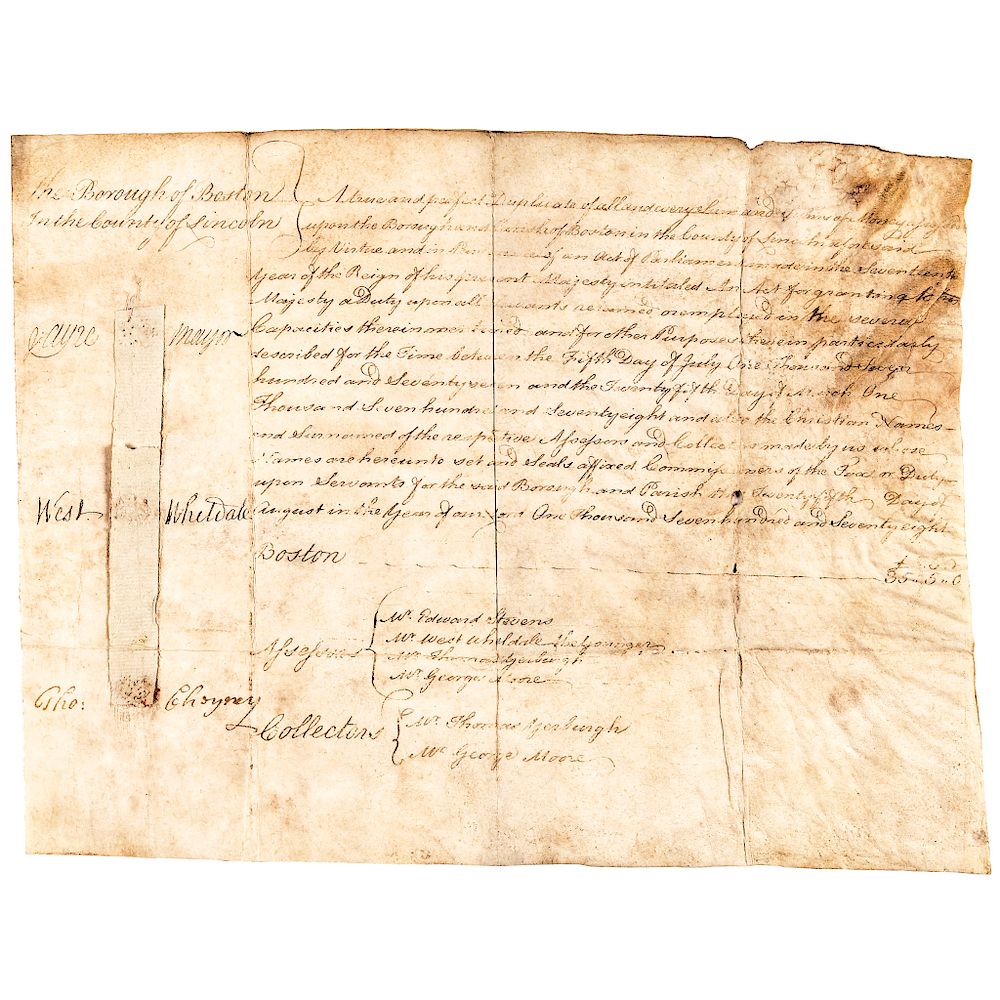 The Borough of Boston
In the County of Lincoln
A true and perfect Duplicate of all and every Sum and Sums of Money
upon the Borough and Parish of Boston in the County of Lincoln aforesaid
by Virtue and in Pursuance of an Act of Parliament made in the Seventeenth
Year of the Reign of his present Majesty intitaled An Act for granting to his
Majesty a Duty upon all Servants retained or employed in the several
Capacities therein mentioned and for other Purposes therein particularly
described for the Time between the Fifth Day of July One Thousand Seven
hundred and Seventy seven and the Twenty fifth Day of March One
Thousand Seven hundred and Seventy eight and also the Christian Names
and Surnames of the respective Assessors and Collectors made by us whose
Names are hereunto set and Seals affixed Commissioners of the Tax or Duty
upon Servants for the said Borough and Parish this Twenty fifth Day of
August in the Year of our Lord One Thousand Seven hundred and Seventy eight
Mayor
West Wheldale
Tho: Cheyney
Boston
35 " 5 " 0
Assessors
Mr. Edward Stevens
Mr. West Wheldale the Younger
Mr. Thomas Yerburgh
Mr. George Moore
Collectors
Mr. Thomas Yerburgh
Mr. George Moore